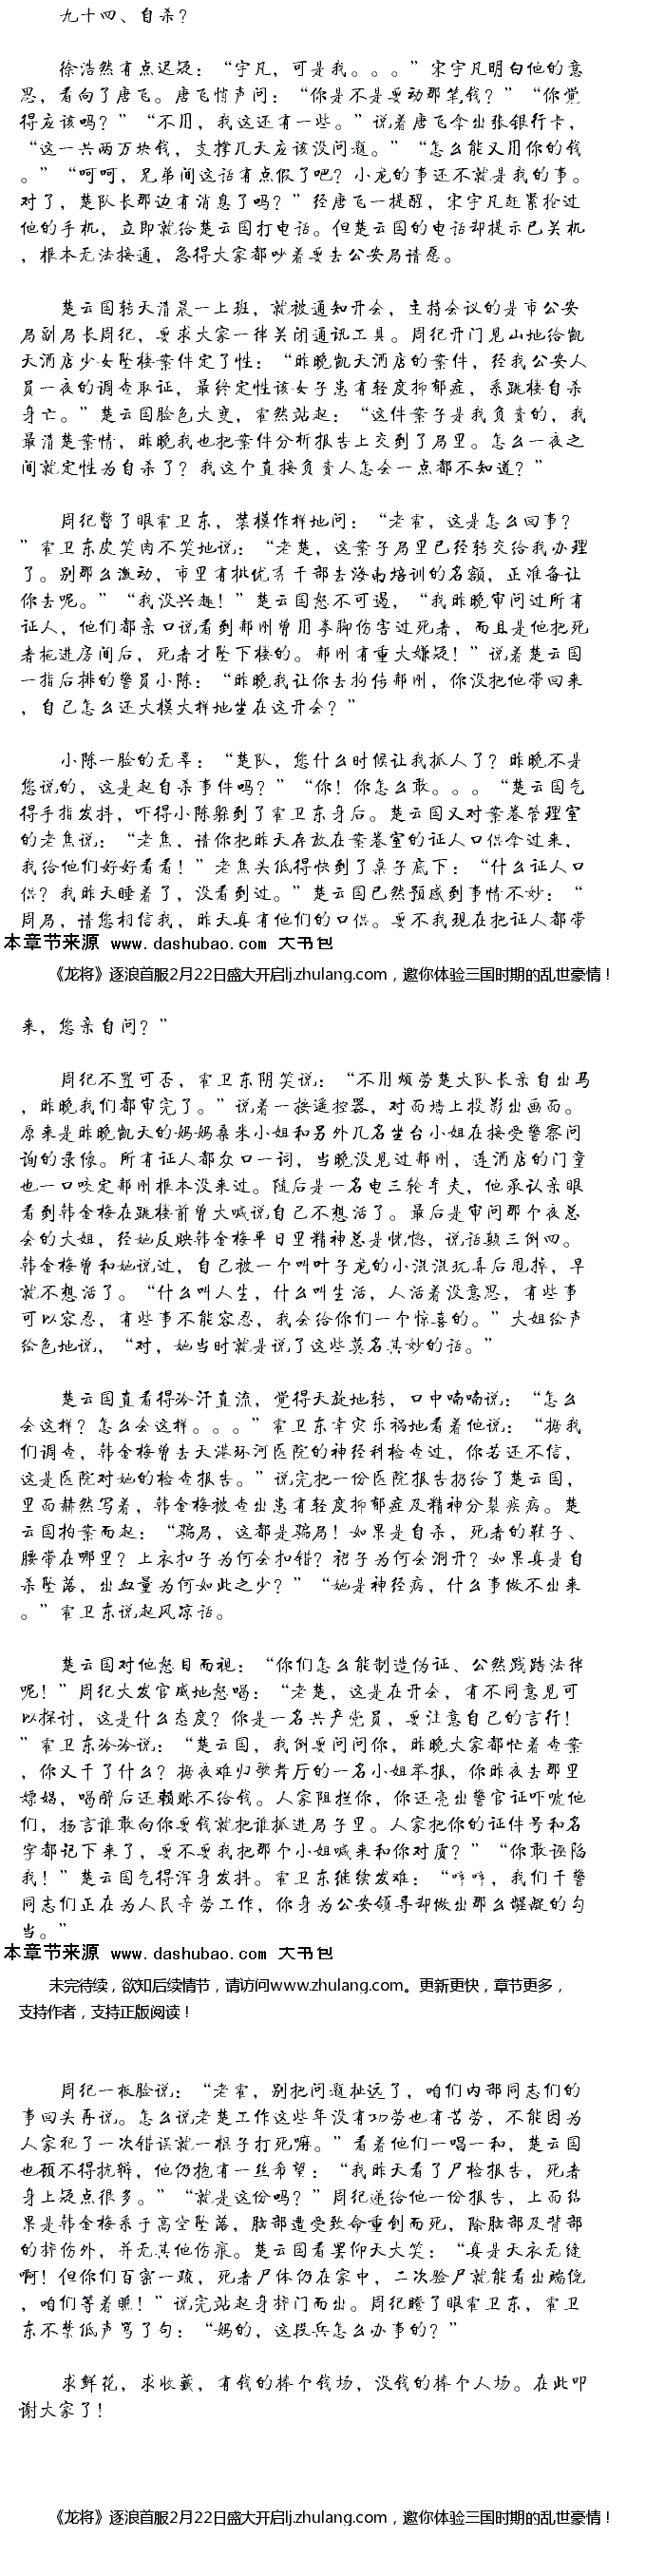 九十四、自杀?
徐浩然有点迟疑:“宇凡，可是我。。。”宋宇凡明白他的意
思，看向了唐飞。唐飞悄声问:“你是不是要动那笔钱?”“你觉
得应该吗?”“不用，我这还有一些。”说着唐飞拿出张银行卡，
“这一共两万块钱，支撑几天应该没问题。”“怎么能又用你的钱
。”“呵呵，兄弟间这话有点假了吧?小龙的事还不就是我的事。
对了，楚队长那边有消息了吗?”经唐飞一提醒，宋宇凡赶紧抢过
他的手机，立即就给楚云国打电话。但楚云国的电话却提示已关机
，根本无法接通，急得大家都吵着要去公安局请愿。
楚云国转天清晨一上班，就被通知开会，主持会议的是市公安
局副局长周纪，要求大家一律关闭通讯工具。周纪开门见山地给凯
天酒店少女坠楼案件定了性:“昨晚凯天酒店的案件，经我公安人
员一夜的调查取证，最终定性该女子患有轻度抑郁症，系跳楼自杀
身亡。”楚云国脸色大变，霍然站起:“这件案子是我负责的，我
最清楚案情，昨晚我也把案件分析报告上交到了局里。怎么一夜之
间就定性为自杀了?我这个直接负责人怎会一点都不知道?”
周纪瞥了眼霍卫东，装模作样地问:“老霍，这是怎么回事?
”霍卫东皮笑肉不笑地说:“老楚，这案子局里已经转交给我办理
了。别那么激动，市里有批优秀干部去海南培训的名额，正准备让
你去呢。”“我没兴趣!”楚云国怒不可遏，“我昨晚审问过所有
证人，他们都亲口说看到郝刚曾用拳脚伤害过死者，而且是他把死
者拖进房间后，死者才坠下楼的。郝刚有重大嫌疑!”说着楚云国
一指后排的警员小陈:“昨晚我让你去拘传郝刚，你没把他带回来
，自己怎么还大模大样地坐在这开会?”
小陈一脸的无辜:“楚队，您什么时候让我抓人了?昨晚不是
您说的，这是起自杀事件吗?”“你!你怎么敢。。。“楚云国气
得手指发抖，吓得小陈躲到了霍卫东身后。楚云国又对案卷管理室
的老焦说:“老焦，请你把昨天存放在案卷室的证人口供拿过来，
我给他们好好看看!”老焦头低得快到了桌子底下:“什么证人口
供?我昨天睡着了，没看到过。”楚云国已然预感到事情不妙:“
周局，请您相信我，昨天真有他们的口供。要不我现在把证人都带
本章节来源 www.dashubao.com 大书包
《龙将》逐浪首服2月22日盛大开启lj.zhulang.com，邀你体验三国时期的乱世豪情!
来，您亲自问?”
周纪不置可否，霍卫东阴笑说:“不用烦劳楚大队长亲自出马
，昨晚我们都审完了。”说着一按遥控器，对面墙上投影出画面。
原来是昨晚凯天的妈妈桑米小姐和另外几名坐台小姐在接受警察问
询的录像。所有证人都众口一词，当晚没见过郝刚，连酒店的门童
也一口咬定郝刚根本没来过。随后是一名电三轮车夫，他承认亲眼
看到韩金梅在跳楼前曾大喊说自己不想活了。最后是审问那个夜总
会的大姐，经她反映韩金梅平日里精神总是恍惚，说话颠三倒四。
韩金梅曾和她说过，自己被一个叫叶子龙的小混混玩弄后甩掉，早
就不想活了。“什么叫人生，什么叫生活，人活着没意思，有些事
可以容忍，有些事不能容忍，我会给你们一个惊喜的。”大姐绘声
绘色地说，“对，她当时就是说了这些莫名其妙的话。”
楚云国直看得冷汗直流，觉得天旋地转，口中喃喃说:“怎么
会这样?怎么会这样。。。”霍卫东幸灾乐祸地看着他说:“据我
们调查，韩金梅曾去天港环河医院的神经科检查过，你若还不信，
这是医院对她的检查报告。”说完把一份医院报告扔给了楚云国，
里面赫然写着，韩金梅被查出患有轻度抑郁症及精神分裂疾病。楚
云国拍案而起:“骗局，这都是骗局!如果是自杀，死者的鞋子、
腰带在哪里?上衣扣子为何会扣错?裙子为何会洞开?如果真是自
杀坠落，出血量为何如此之少?”“她是神经病，什么事做不出来
。”霍卫东说起风凉话。
楚云国对他怒目而视:“你们怎么能制造伪证、公然践踏法律
呢!”周纪大发官威地怒喝:“老楚，这是在开会，有不同意见可
以探讨，这是什么态度?你是一名共产党员，要注意自己的言行!
”霍卫东冷冷说:“楚云国，我倒要问问你，昨晚大家都忙着查案
，你又干了什么?据夜难归歌舞厅的一名小姐举报，你昨夜去那里
嫖娼，喝醉后还赖账不给钱。人家阻拦你，你还亮出警官证吓唬他
们，扬言谁敢向你要钱就把谁抓进局子里。人家把你的证件号和名
字都记下来了，要不要我把那个小姐喊来和你对质?”“你敢诬陷
我!”楚云国气得浑身发抖。霍卫东继续发难:“哼哼，我们干警
同志们正在为人民辛劳工作，你身为公安领导却做出那么龌龊的勾
当。”
本章节来源 www.dashubao.com 大书包
未完待续，欲知后续情节，请访问www.zhulang.com。更新更快，章节更多，
支持作者，支持正版阅读!
周纪一板脸说:“老霍，别把问题扯远了，咱们内部同志们的
事回头再说。怎么说老楚工作这些年没有功劳也有苦劳，不能因为
人家犯了一次错误就一棍子打死嘛。”看着他们一唱一和，楚云国
也顾不得抗辩，他仍抱有一丝希望:“我昨天看了尸检报告，死者
身上疑点很多。”“就是这份吗?”周纪递给他一份报告，上面结
果是韩金梅系于高空坠落，脑部遭受致命重创而死，除脑部及背部
的摔伤外，并无其他伤痕。楚云国看罢仰天大笑:“真是天衣无缝
啊!但你们百密一疏，死者尸体仍在家中，二次验尸就能看出端倪
，咱们等着瞧!”说完站起身摔门而出。周纪瞪了眼霍卫东，霍卫
东不禁低声骂了句:“妈的，这段兵怎么办事的?”
求鲜花，求收藏，有钱的捧个钱场，没钱的捧个人场。在此叩
谢大家了!
《龙将》逐浪首服2月22日盛大开启lj.zhulang.com，邀你体验三国时期的乱世豪情!